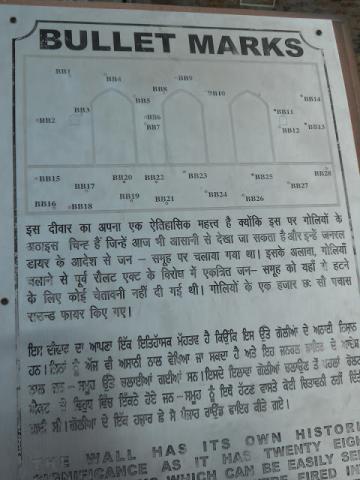 BULLET MARKS
BB1
BB4
BB9
BB8
BB10
BB5
BB14
BB3
BB11
BB2
BB6
BB7
BB12
BB13
BB28
BB15
BB20
BB22
BB23
BB25
BB17
BB27
BB19
BB21
BB24
BB26
BB16
BB18
इस दीवार का अपना एक ऐतिहासिक महत्त्व है क्योंकि इस पर गोलियों के
अठाइस चिन्ह हैं जिन्हें आज भी आसानी से देखा जा सकता है और इन्हें जनरल
डायर के आदेश से जन - समूह पर चलाया गया था। इसके अलावा, गोलियाँ
चलाने से पूर्व रौलट एक्ट के विरोध में एकत्रित जन- समूह को यहाँ से हटने
के लिए कोई चेतावनी नहीं दी गई थी। गोलियों के एक हजार छः सौ पचास
राउन्ड फायर किए गए।
ਇਸ ਦੀਵਾਰ ਦਾ ਆਪਣਾ ਇੱਕ ਇਤਿਹਾਸਕ ਮਹੱਤਵ ਹੈ ਕਿਉਂਕਿ ਇਸ ਉੱਤੇ ਗੋਲੀਆਂ ਦੇ ਅਠਾਈ ਨਿਸ਼ਾਨ
ਹਨ। ਨੂੰ ਅੱਜ ਵੀ ਅਸਾਨੀ ਨਾਲ ਵੇਖਿਆ ਜਾ ਸਕਦਾ ਹੈ ਅਤੇ ਇਹ ਜਨਰਲ ਡਾਇਰ ਦੇ ਆਦੇਸ਼
ਨਾਲ ਜਨ-ਸਮੂਹ ਉੱਤੇ ਚਲਾਈਆਂ ਗਈਆਂ ਸਨ। ਇਸਦੇ ਇਲਾਵਾ ਗੋਲੀਆਂ ਚਲਾਉਣ ਤੋਂ ਪਹਿਲਾਂ ਰੌਲਟ
ਦੇ ਵਿਰੁਧ ਵਿੱਚ ਇਕੱਠੇ ਹੋਏ ਜਨ-ਸਮੂਹ ਨੂੰ ਇਥੋਂ ਹੱਟਣ ਵਾਸਤੇ ਕੋਈ ਚਿਤਾਵਨੀ ਨਹੀਂ ਦਿੱਤੀ
ਗਈ ਸੀ। ਗੋਲੀਆਂ ਦੇ ਇੱਕ ਹਜ਼ਾਰ ਛੇ ਸੌ ਪੰਜਾਹ ਰਾਊਂਡ ਫਾਇਰ ਕੀਤੇ ਗਏ।
THE WALL HAS ITS OWN HISTORI
SIGNIFICANCE AS IT HAS TWENTY EIGH
WHICH CAN BE EASILY SEE
WERE FIRED IN